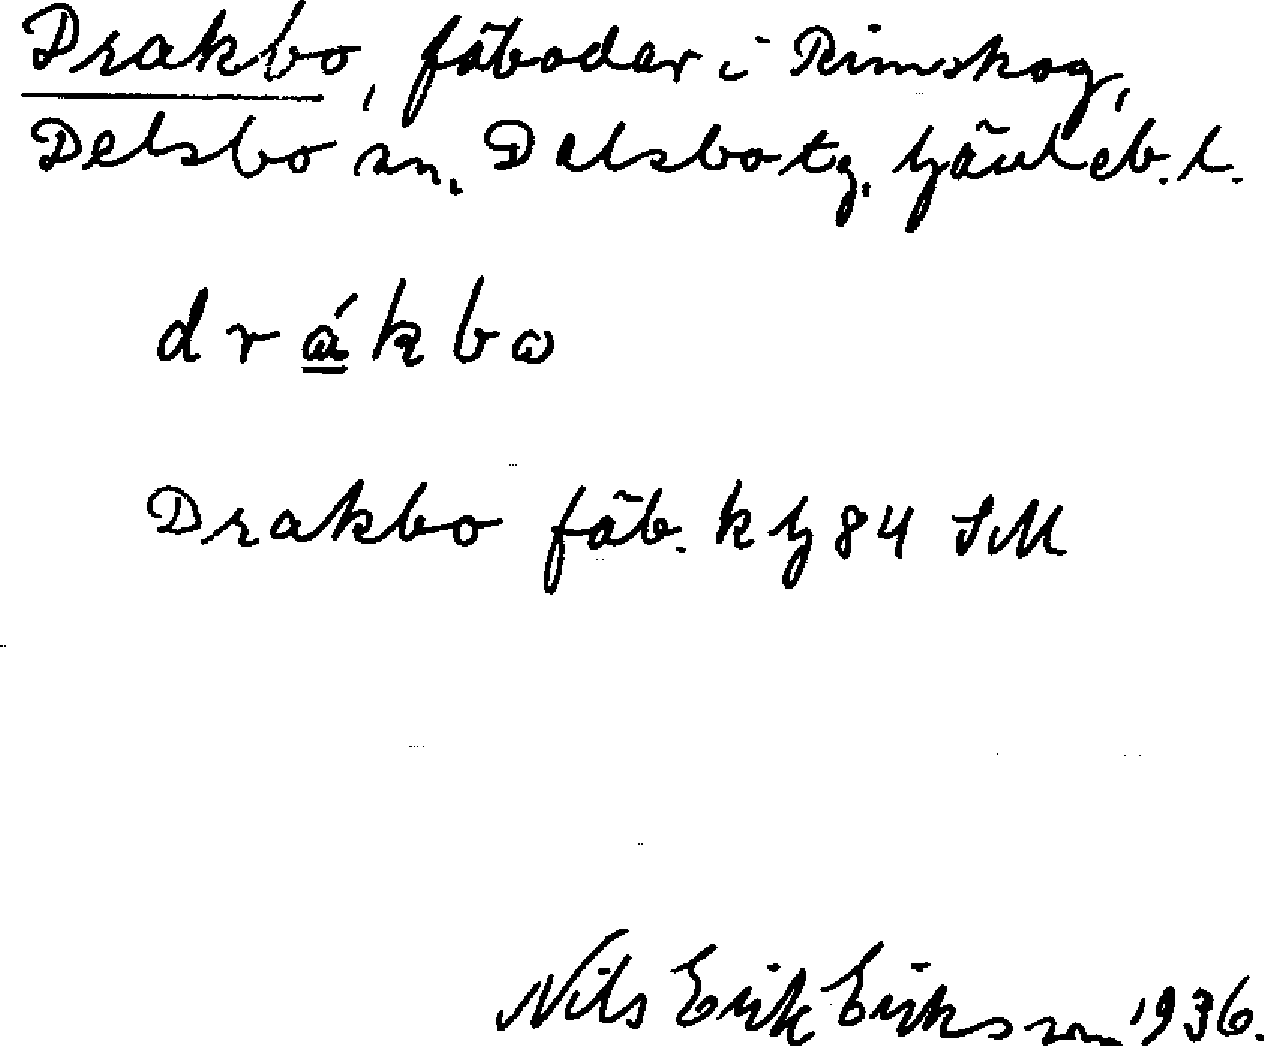 Drakbo, fäbodar i Rimskog,
Delsbo sn. Delsbo tg. Gävleb. l.
drákbω
Drakbo fäb. k bl 84 SM
Nils Erik Eriksson 1936.